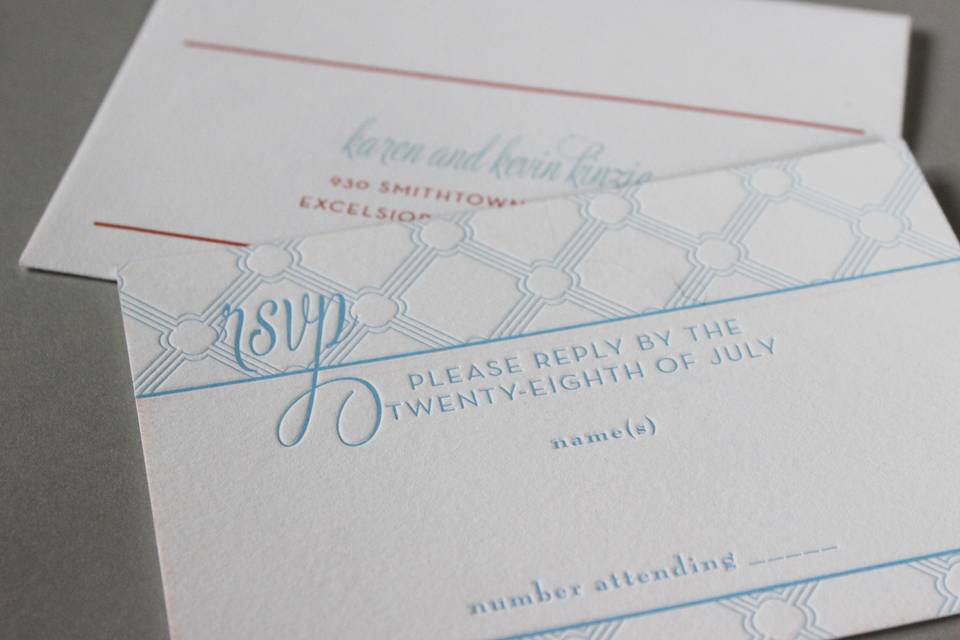 karen and kevin kinzie
930 SMITHTOWN
EXCELSIOR
rsvp
PLEASE REPLY BY THE
TWENTY-EIGHTH OF JULY
name(s)
number attending _____